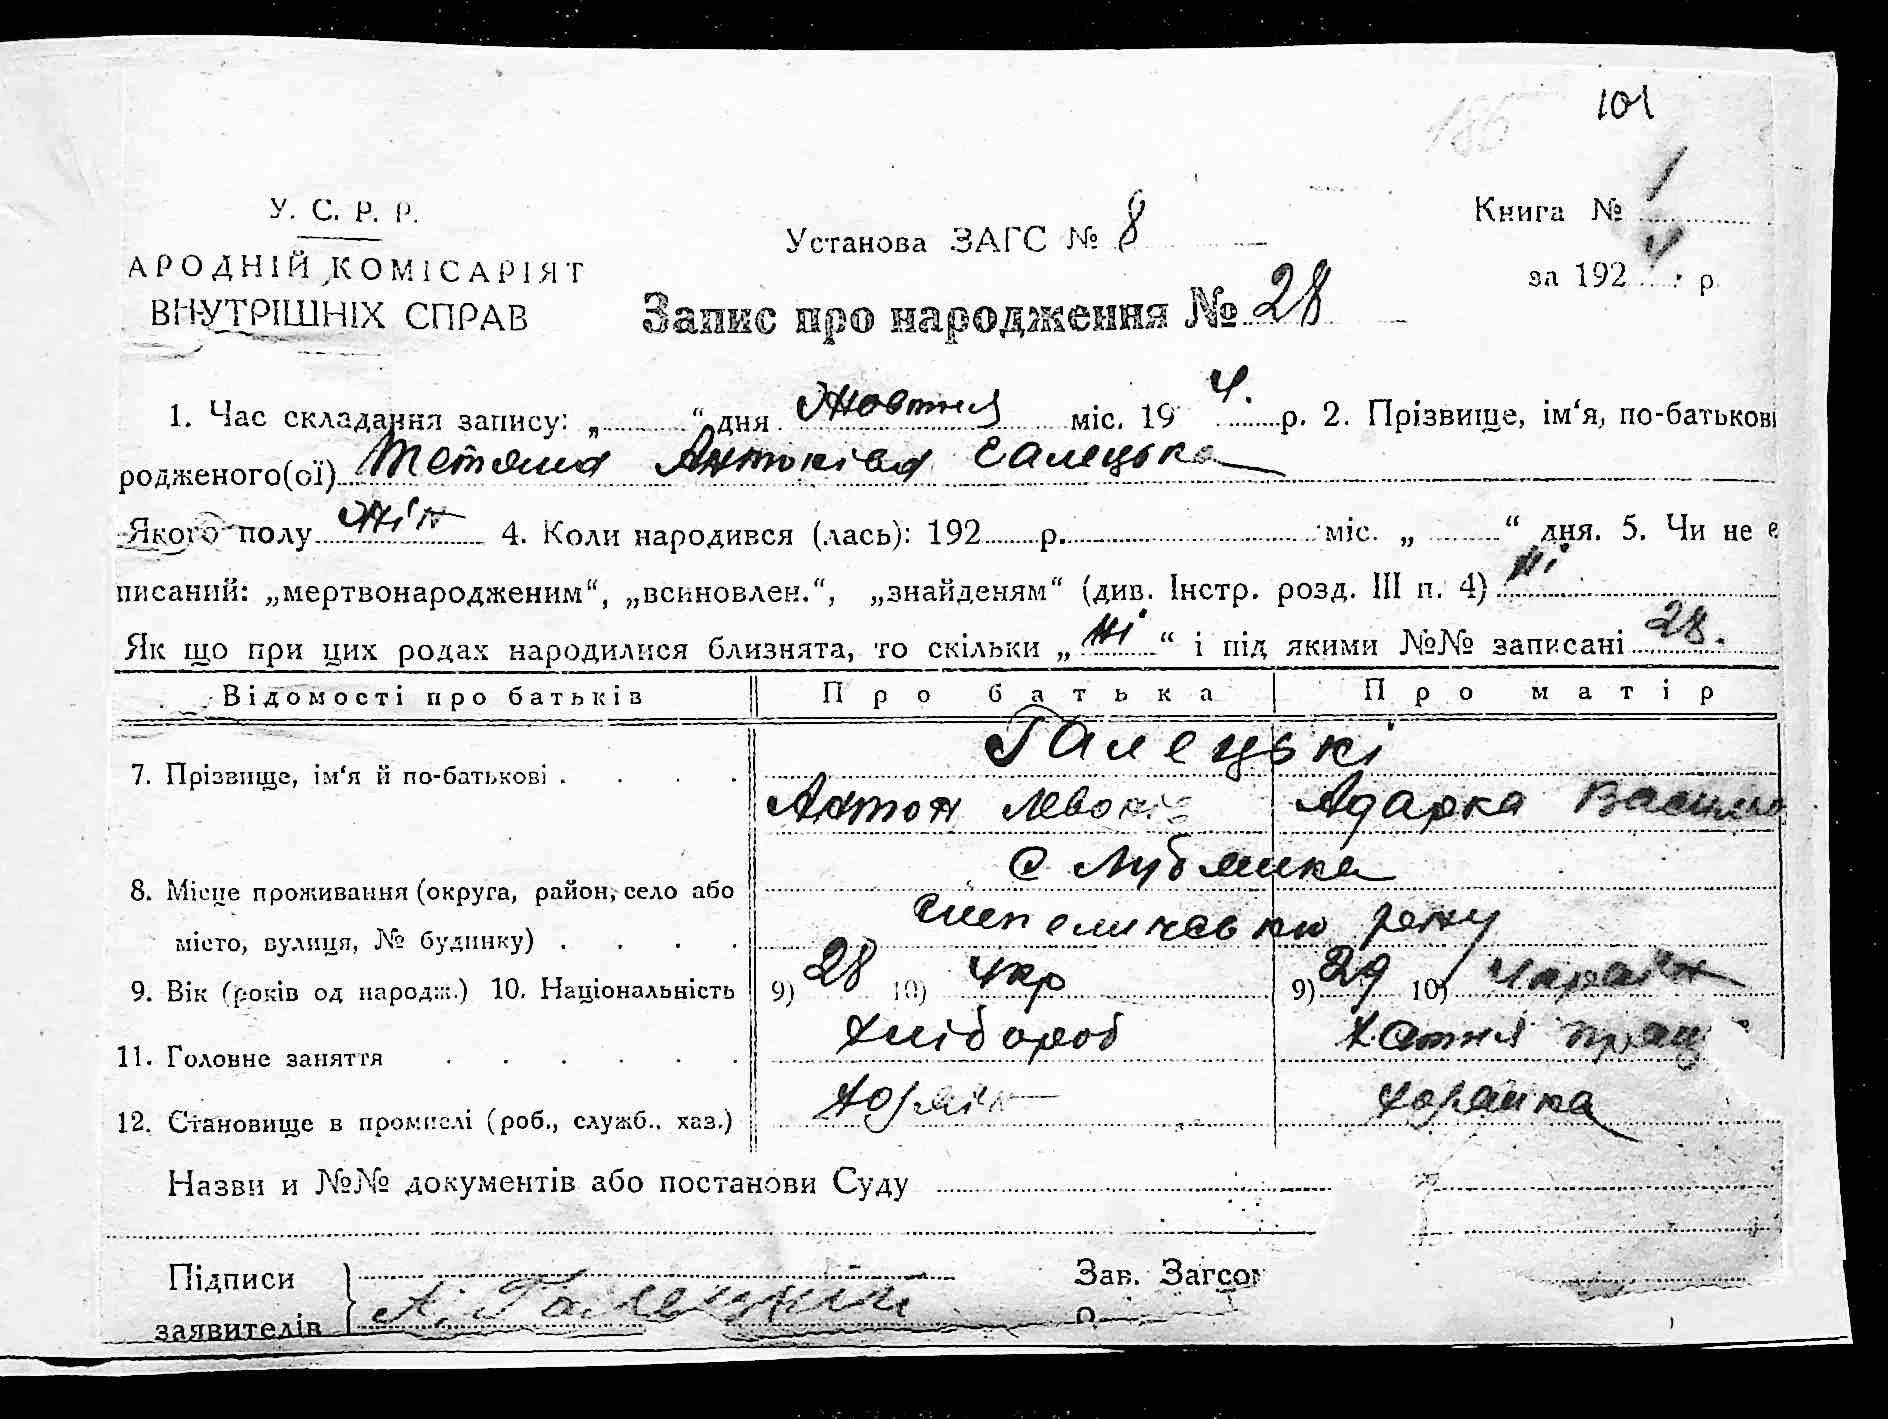 101
186
У. С. Р. Р.
АРОДНІЙ КОМІСАРІЯТ
ВНУТРІШНІХ СПРАВ
Установа ЗАГС № 8
Книга № 1
за 1924 р.
Запис про народження № 28
1. Час складання запису: „ “ дня Жовтня міс. 19 4. р. 2. Прізвище, ім‘я, по-батькові
родженого(ої) Тетяна Антонівна Галецька
Якого полу Жін 4. Коли народився (лась): 192 р. міс. „ “ дня. 5. Чи не е
писаний: „мертвонародженим“, „всиновлен.“, „знайденям“ (див. Інстр. розд. III п. 4) Ні
Як що при цих родах народилися близнята, то скільки „ Ні “ і під якими №№ записані 28.
Відомості про батьків Про батька Про матір
Галецькі
7. Прізвище, ім‘я й по-батькові . . . . Антон Левонів Адарка Василів
с Лубянка
8. Місце проживання (округа, район, село або
місто, вулиця, № будинку) . . . . Шепеличєвськ рену
9. Вік (років од народж.) 10. Національність 9) 28 10) Укр 9) 29 10) Украін
11. Головне заняття . . . . . . Хлібороб Хатня прац
12. Становище в промислі (роб., служб., хаз.) Хозяін Хозяйка
Назви и №№ документів або постанови Суду
Підписи
заявителів А. Галецкий
Зав. Загсом